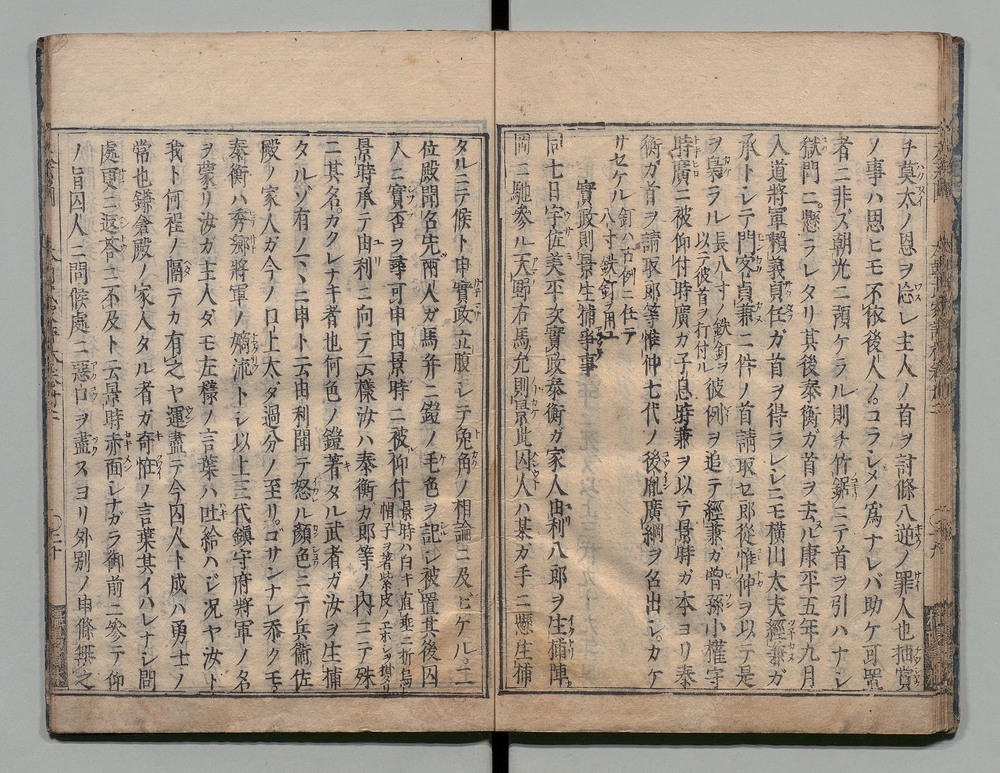 チ莫太ノ恩ヲ忘レ主人ノ首ヲ討條八逆ノ罪人也抽賞
ノ事ハ思ヒモ不依後人ノコラシメノ爲ナレバ助ケ可置
者ニ非ズ朝光ニ預ケラル則チ竹鋸ニテ首ヲ引ハナシ
獄門ニ懸ラレタリ其後泰衡ガ首ヲ去ル康平五年九月
入道將軍頼義貞任ガ首ヲ得ラレシニモ横山太夫經兼ガ
承トシテ門客貞兼ニ件ノ首請取セ郎從惟仲ヲ以テ是
ヲ梟ラル長八寸ノ鉄釘ヲ以テ彼首ヲ打付ル彼例ヲ追テ經兼カ曽孫小權守
時廣ニ被仰付時廣カ子息時兼ヲ以テ景時ガ本ヨリ泰
衡ガ首ヲ請取郎等惟仲七代ノ後胤廣綱ヲ召出シカケ
サセケル釘ハ古例ニ任テ八寸鉄釘ヲ用ユ
實政則景生捕爭事
同七日宇佐美平次實政泰衡ガ家人由利八郎ヲ生捕陣
岡ニ馳参ル天野右馬允則景此囚人ハ某ガ手ニ懸生捕
タルニテ候ト申實政立腹シテ兔角ノ相論ニ及ビケル二
位殿聞召先兩人ガ馬并ニ鎧ノ毛色ヲ記シ被置其後囚
人ニ實否ヲ尋可申由景時ニ被仰付景時ハ白キ直垂ニ折烏帽子ヲ著紫皮ノエボシ掛タリ
景時承テ由利ニ向テ云様汝ハ泰衡カ郎等ノ内ニテ殊
ニ其名カクレナキ者也何色ノ鎧著タル武者ガ汝ヲ生捕
タルゾ有ノマヽニ申ト云由利聞テ怒ル顔色ニテ兵衛佐
殿ノ家人ガ今ノ口上太ダ過分ノ至リゴサンナレ忝クモ
泰衡ハ秀郷將軍ノ嫡流トシ以上三代鎮守府將軍ノ名
ヲ蒙リ汝ガ主人ダモ左様ノ言葉ハ吐給ハジ况ヤ汝ト
我ト何程ノ隔テカ有之ヤ運盡テ今囚人ト成ハ勇士ノ
常也鎌倉殿ノ家人タル者ガ奇怪ノ言葉其イハレナシ問
處更ニ返答ニ不及ト云景時赤面シナガラ御前ニ参テ仰
ノ旨囚人ニ問候處ニ惡口ヲ盡スヨリ外別ノ申條無之